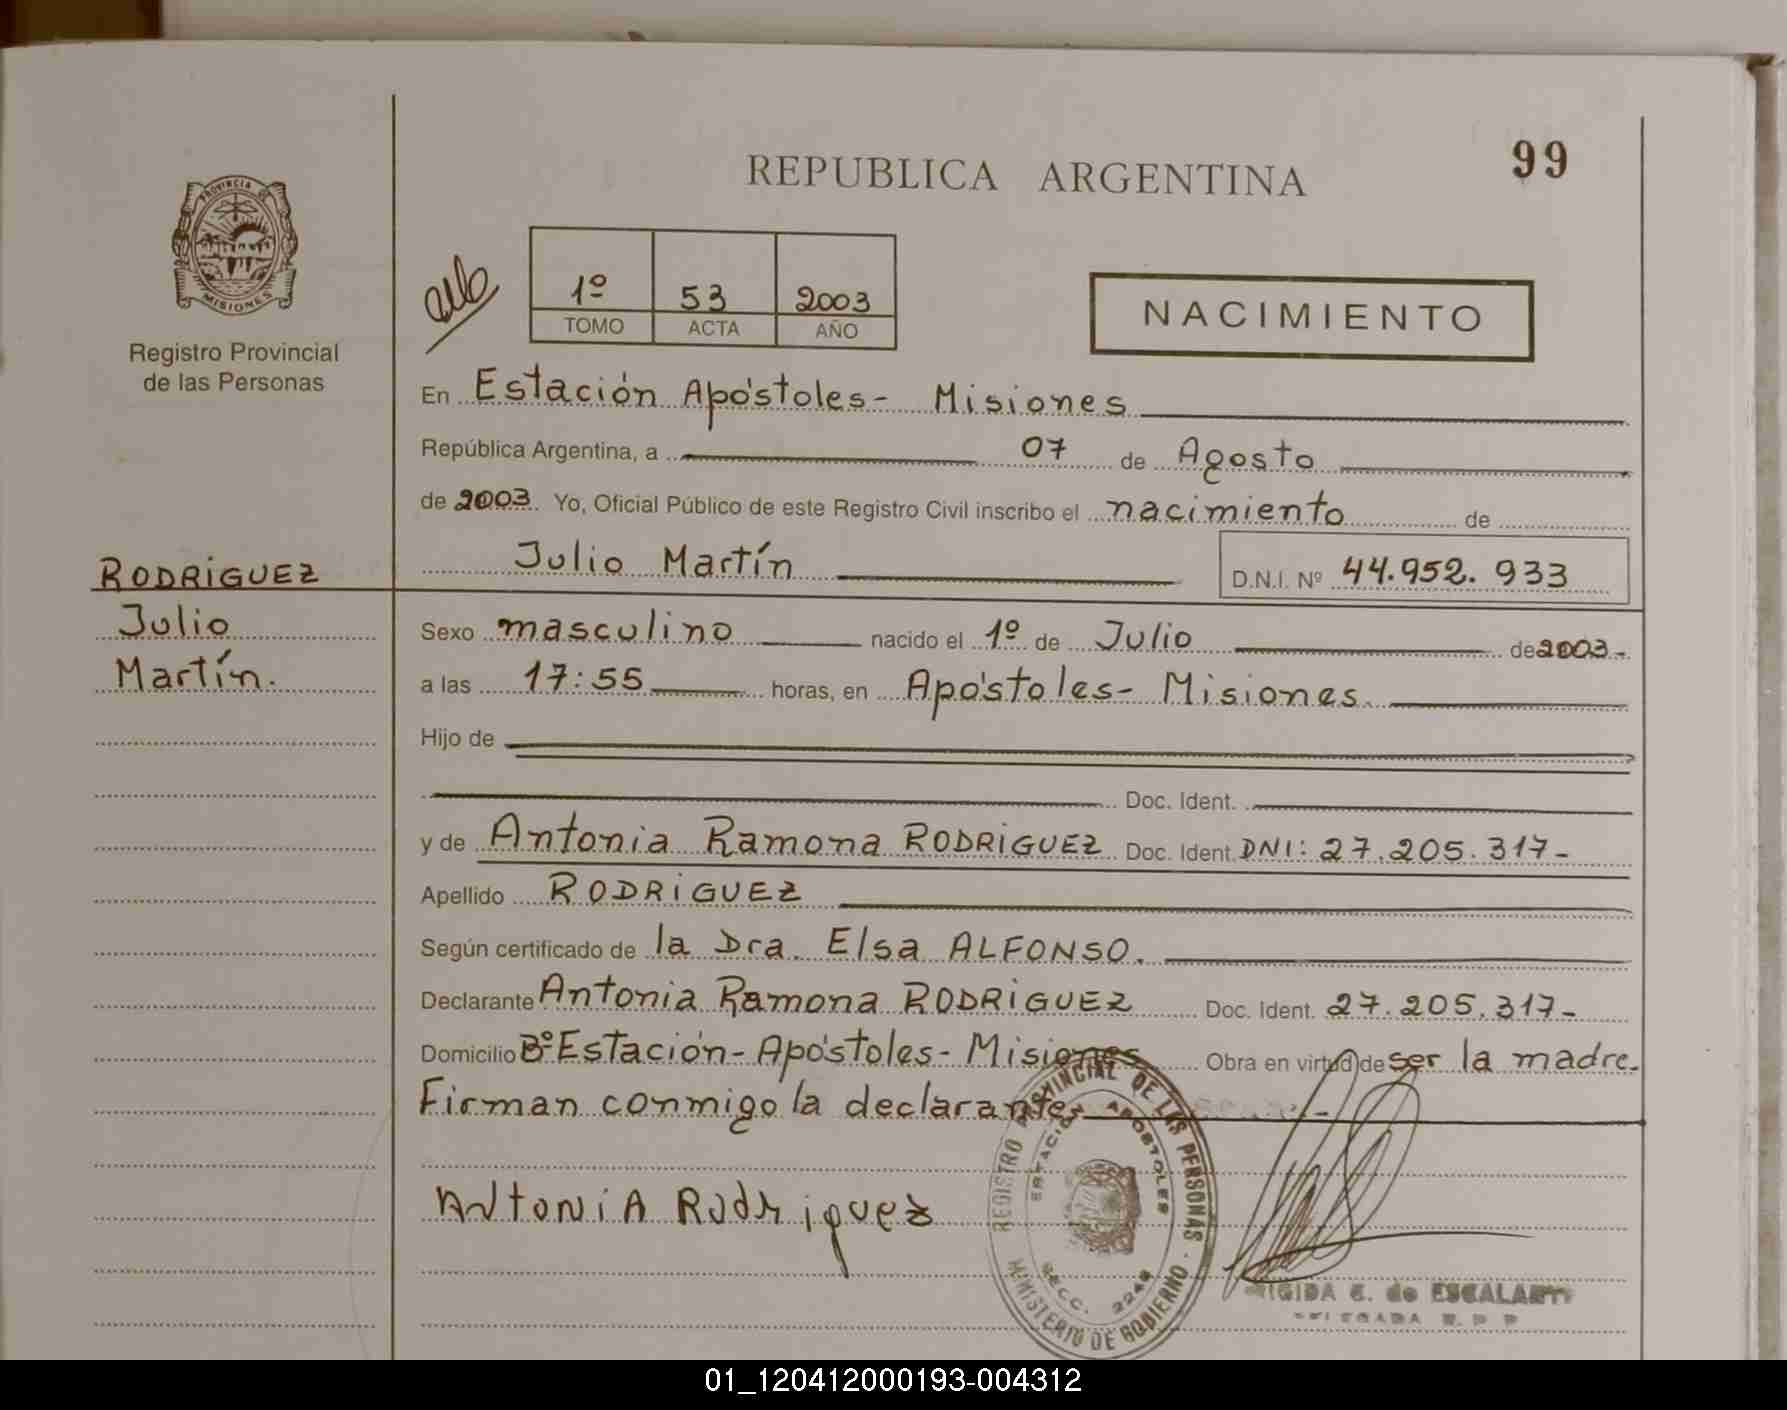 REPUBLICA ARGENTINA
99
PROVINCIA DE
MISIONES
Registro Provincial
de las Personas
1º 53 2003
TOMO ACTA AÑO
NACIMIENTO
En Estación Apóstoles- Misiones
República Argentina, a 07 de Agosto
de 2003. Yo, Oficial Público de este Registro Civil inscribo el nacimiento de
Julio Martín D.N.I. Nº 44.952.933
RODRIGUEZ
Julio
Martín.
Sexo masculino nacido el 1º de Julio de 2003-
a las 17:55 horas, en Apóstoles- Misiones.
Hijo de
Doc. Ident.
y de Antonia Ramona RODRIGUEZ Doc. Ident. DNI: 27.205.317-
Apellido RODRIGUEZ
Según certificado de la Dra. Elsa ALFONSO.
Declarante Antonia Ramona RODRIGUEZ Doc. Ident. 27.205.317-
Domicilio Bº Estación- Apóstoles- Misiones Obra en virtud de ser la madre.
Firman conmigo la declarante
Antonia Rodriguez
REGISTRO PROVINCIAL DE LAS PERSONAS
ESTACION APOSTOLES
SECC. 2248
MINISTERIO DE GOBIERNO
E. de ESCALANTE
01_120412000193-004312